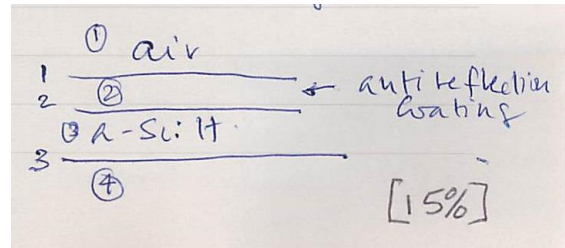 ① air
1
② ← antireflection
2 coating
③ a-Si:H
3
④
[15%]